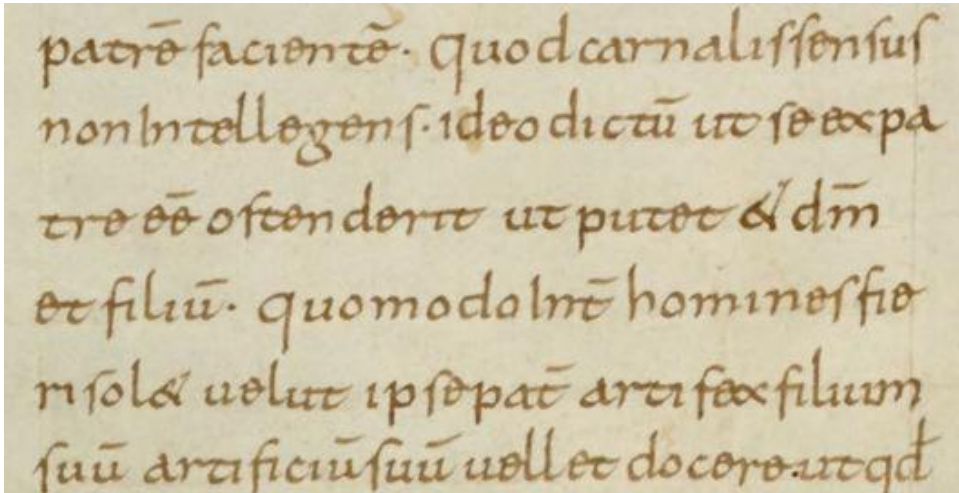 patrē facientē. Quod carnalis sensus
non Intellegens. ideo dictū ut se ex pa
tre eē̄ ostenderit ut putet & dm̄
et filiū. quomodo Int̄ homines fie
ri sol& uelut ipse pat̄ artifex filium
suū artificiū suū uellet docere. ut qđ